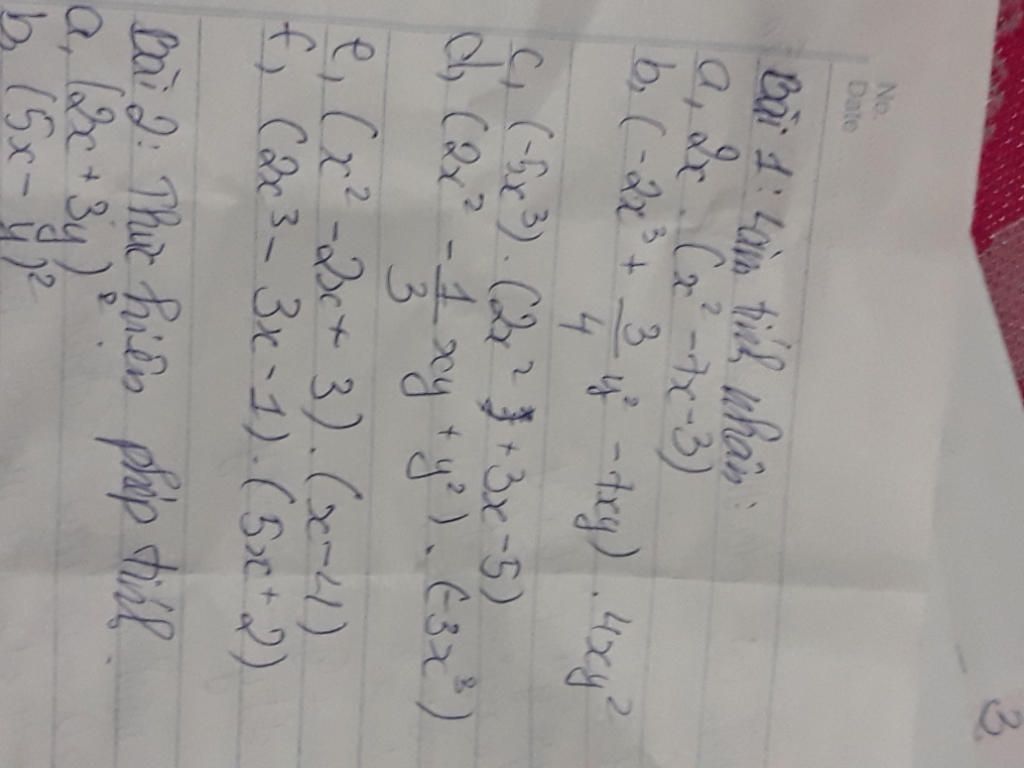 No.
Date
3
Bài 1: Làm tính nhân:
a, 2x . (x² - 7x - 3)
b, (-2x³ + 3/4 y² - 7xy) . 4xy²
c, (-5x³) . (2x² + 3x - 5)
d, (2x² - 1/3 xy + y²) . (-3x³)
e, (x² - 2x + 3) . (x - 4)
f, (2x³ - 3x - 1) . (5x + 2)
Bài 2: Thực hiện phép tính
a, (2x + 3y)²
b, (5x - y)²